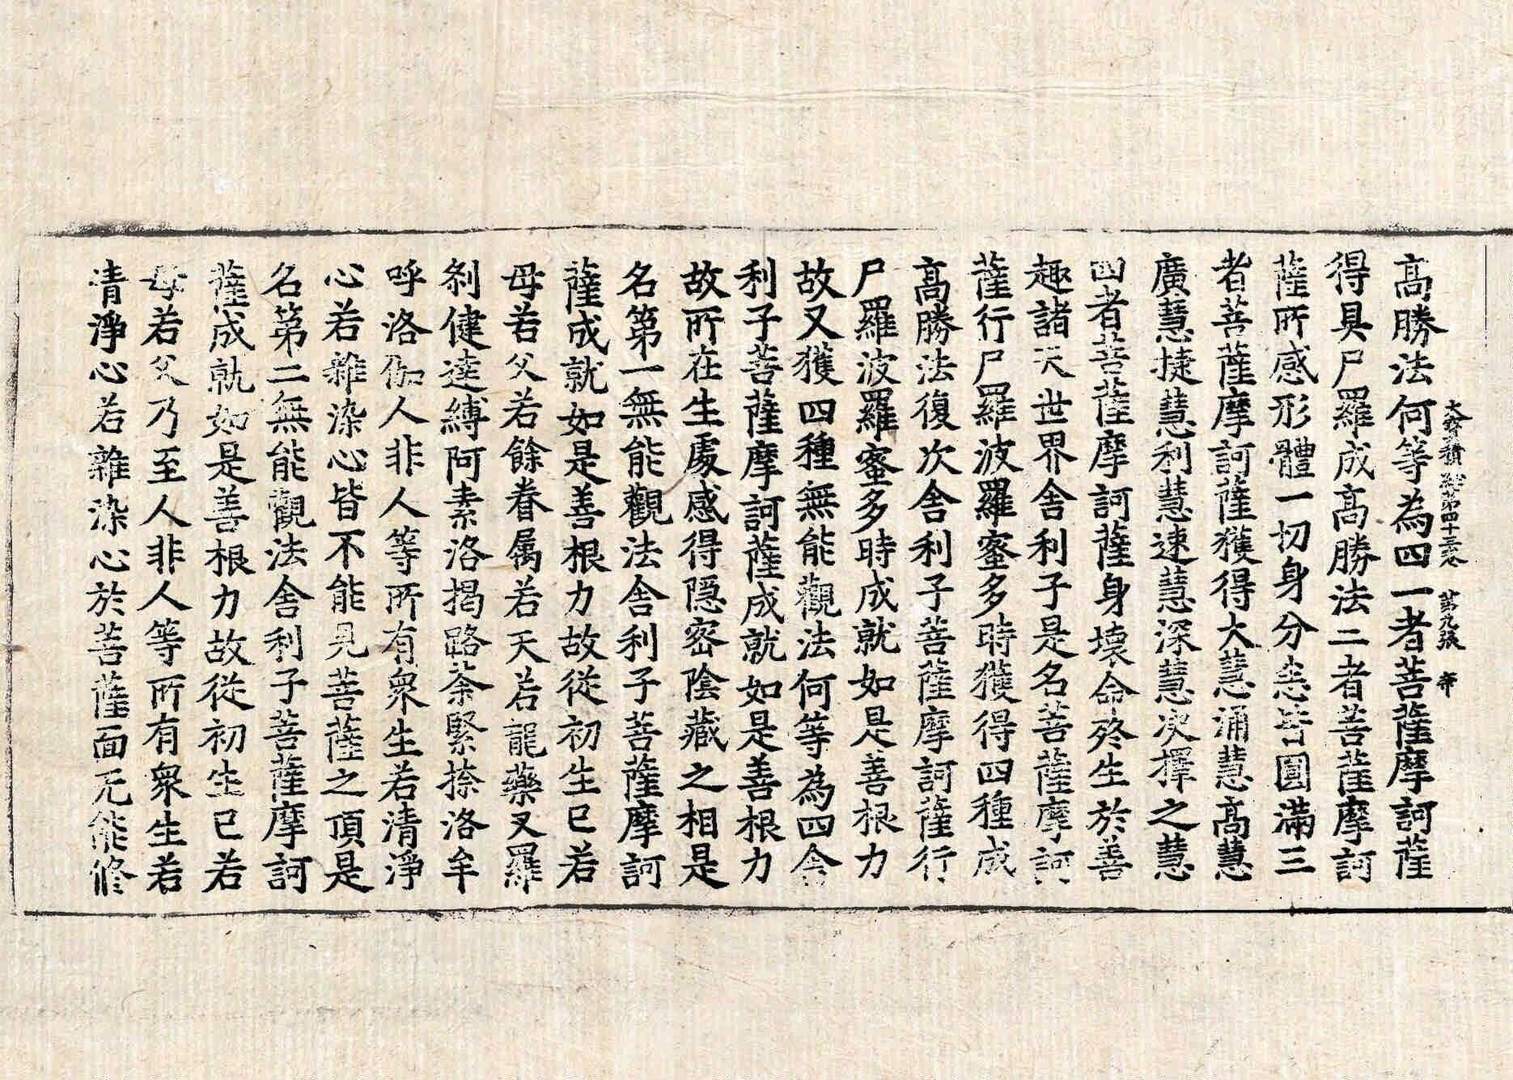 大寶積經第四十三卷 第九張 帝
高勝法何等為四一者菩薩摩訶薩
得具尸羅成高勝法二者菩薩摩訶
薩所感形體一切身分悉皆圓滿三
者菩薩摩訶薩獲得大慧涌慧高慧
廣慧捷慧利慧速慧深慧决擇之慧
四者菩薩摩訶薩身壞命終生於善
趣諸天世界舍利子是名菩薩摩訶
薩行尸羅波羅蜜多時獲得四種成
高勝法復次舍利子菩薩摩訶薩行
尸羅波羅蜜多時成就如是善根力
故又獲四種無能觀法何等為四舍
利子菩薩摩訶薩成就如是善根力
故所在生處感得隠密陰藏之相是
名第一無能觀法舍利子菩薩摩訶
薩成就如是善根力故從初生已若
母若父若餘眷属若天若龍藥叉羅
剎健達縛阿素洛揭路荼緊捺洛牟
呼洛伽人非人等所有衆生若清淨
心若雜染心皆不能見菩薩之頂是
名第二無能觀法舍利子菩薩摩訶
薩成就如是善根力故從初生已若
母若父乃至人非人等所有衆生若
清淨心若雜染心於菩薩面无能修